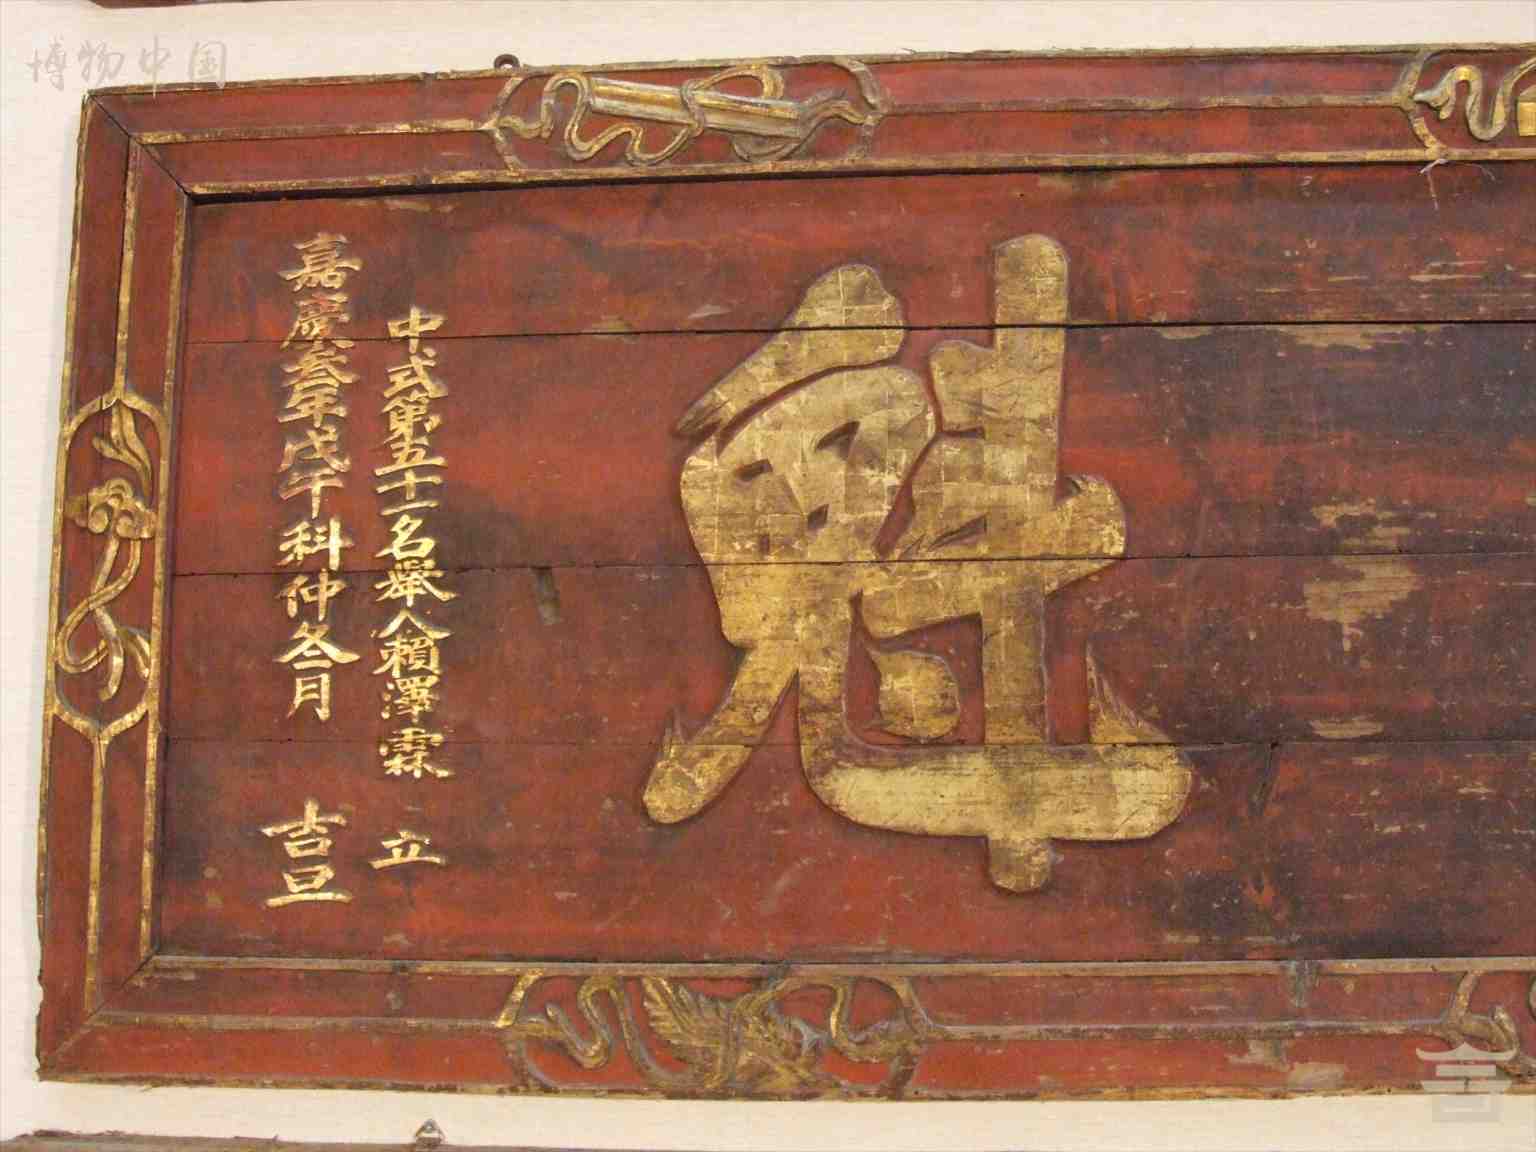 博物中国
魁
中式第五十一名舉人賴澤霖 立
嘉慶叁年戊午科仲冬月 吉旦